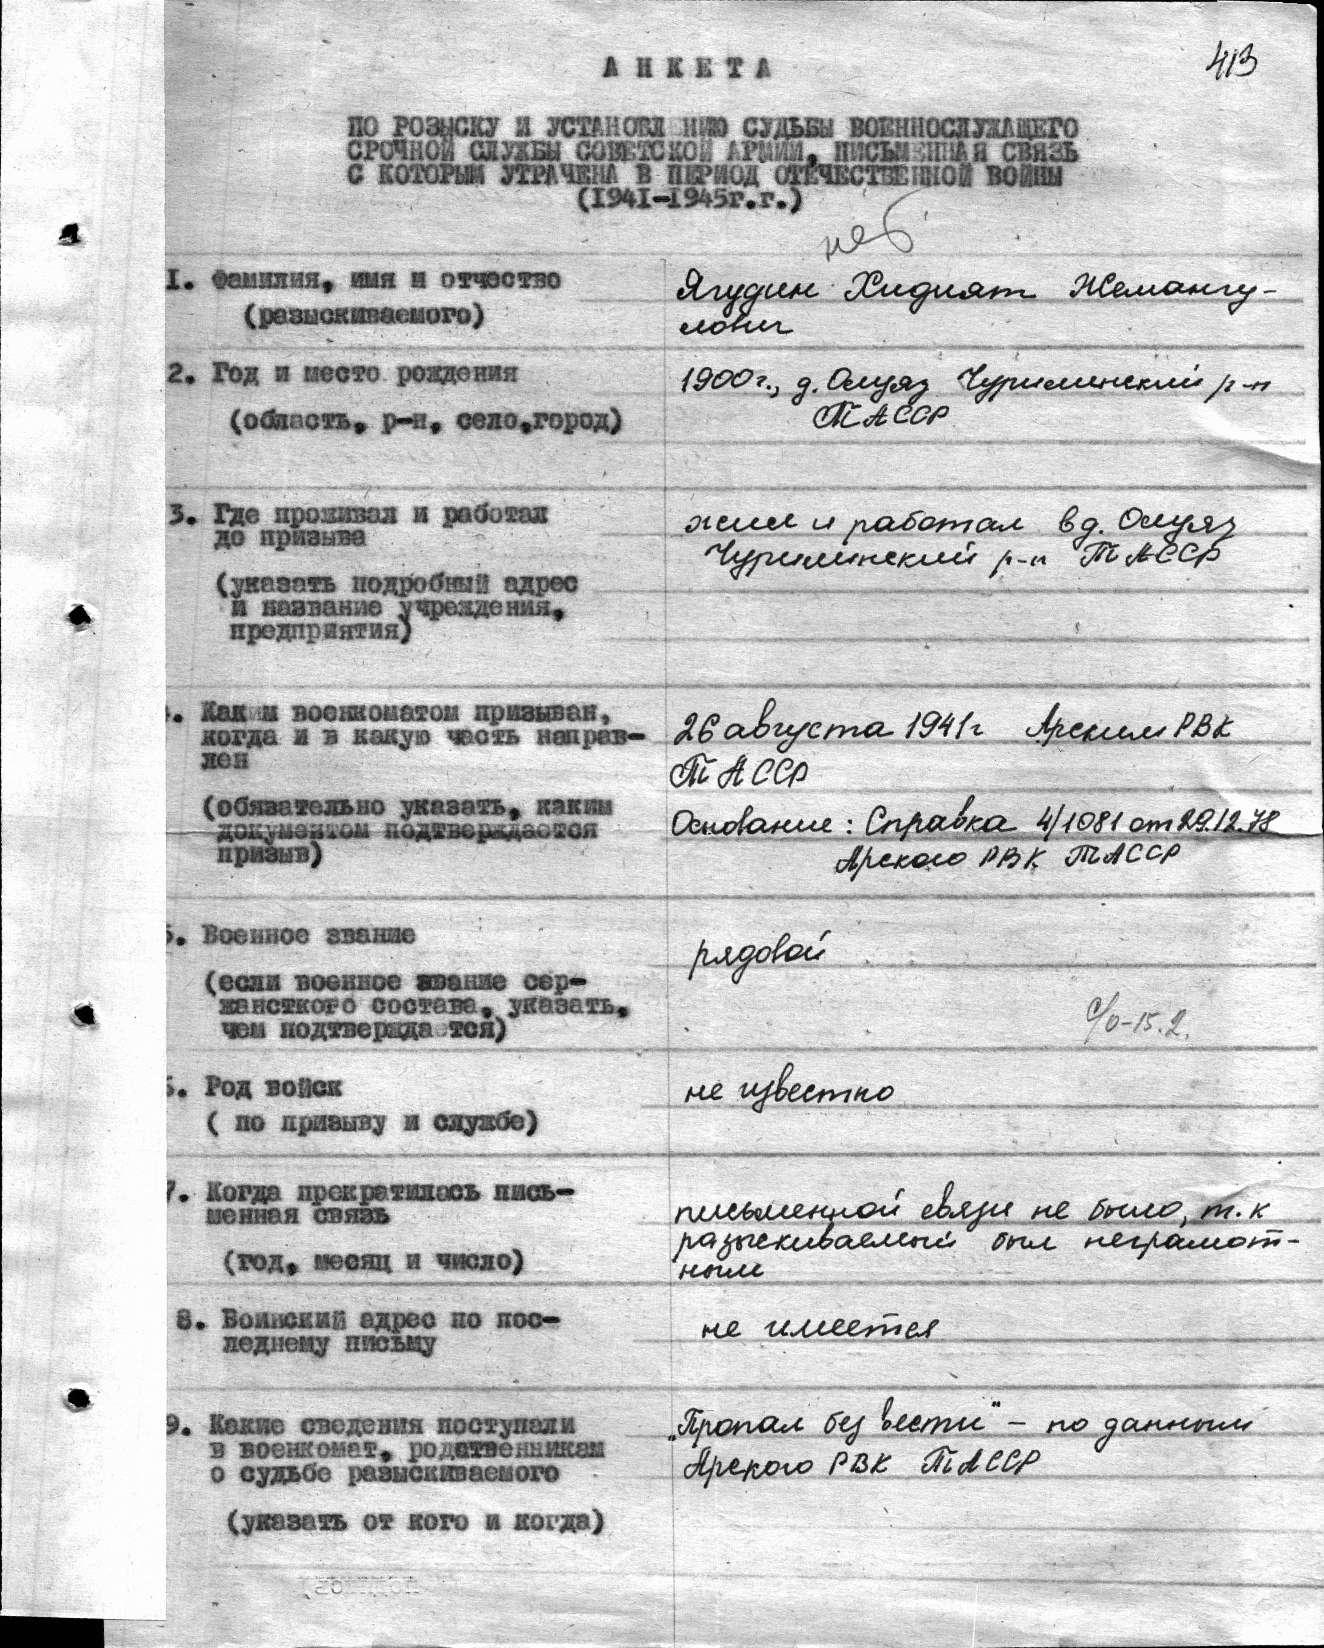 413
АНКЕТА
ПО РОЗЫСКУ И УСТАНОВЛЕНИЮ СУДЬБЫ ВОЕННОСЛУЖАЩЕГО
СРОЧНОЙ СЛУЖБЫ СОВЕТСКОЙ АРМИИ, ПИСЬМЕННАЯ СВЯЗЬ
С КОТОРЫМ УТРАЧЕНА В ПЕРИОД ОТЕЧЕСТВЕННОЙ ВОЙНЫ
(1941-1945г.г.)
1. Фамилия, имя и отчество
(разыскиваемого)
Ягудин Хидият Жемангу-
лович
2. Год и место рождения
(область, р-н, село,город)
1900г., д. Олуяз Чурилинский р-н
ТАССР
3. Где проживал и работал
до призыва
(указать подробный адрес
и название учреждения,
предприятия)
жил и работал в д. Олуяз
Чурилинский р-н ТАССР
. Каким военкоматом призыван,
когда и в какую часть направ-
лен
(обязательно указать, каким
документом подтверждается
призыв)
26 августа 1941г Арским РВК
ТАССР
Основание: Справка 4/1081 от 29.12.78
Арского РВК ТАССР
5. Военное звание
(если военное звание сер-
жансткого состава, указать,
чем подтверждается)
рядовой
с/о-15.2.
6. Род войск
( по призыву и службе)
не известно
7. Когда прекратилась пись-
менная связь
(год, месяц и число)
письменной связи не было, т.к
разыскиваемый был неграмот-
ным
8. Воинский адрес по пос-
леднему письму
не имеется
9. Какие сведения поступали
в военкомат, родственникам
о судьбе разыскиваемого
(указать от кого и когда)
„Пропал без вести" - по данным
Арского РВК ТАССР